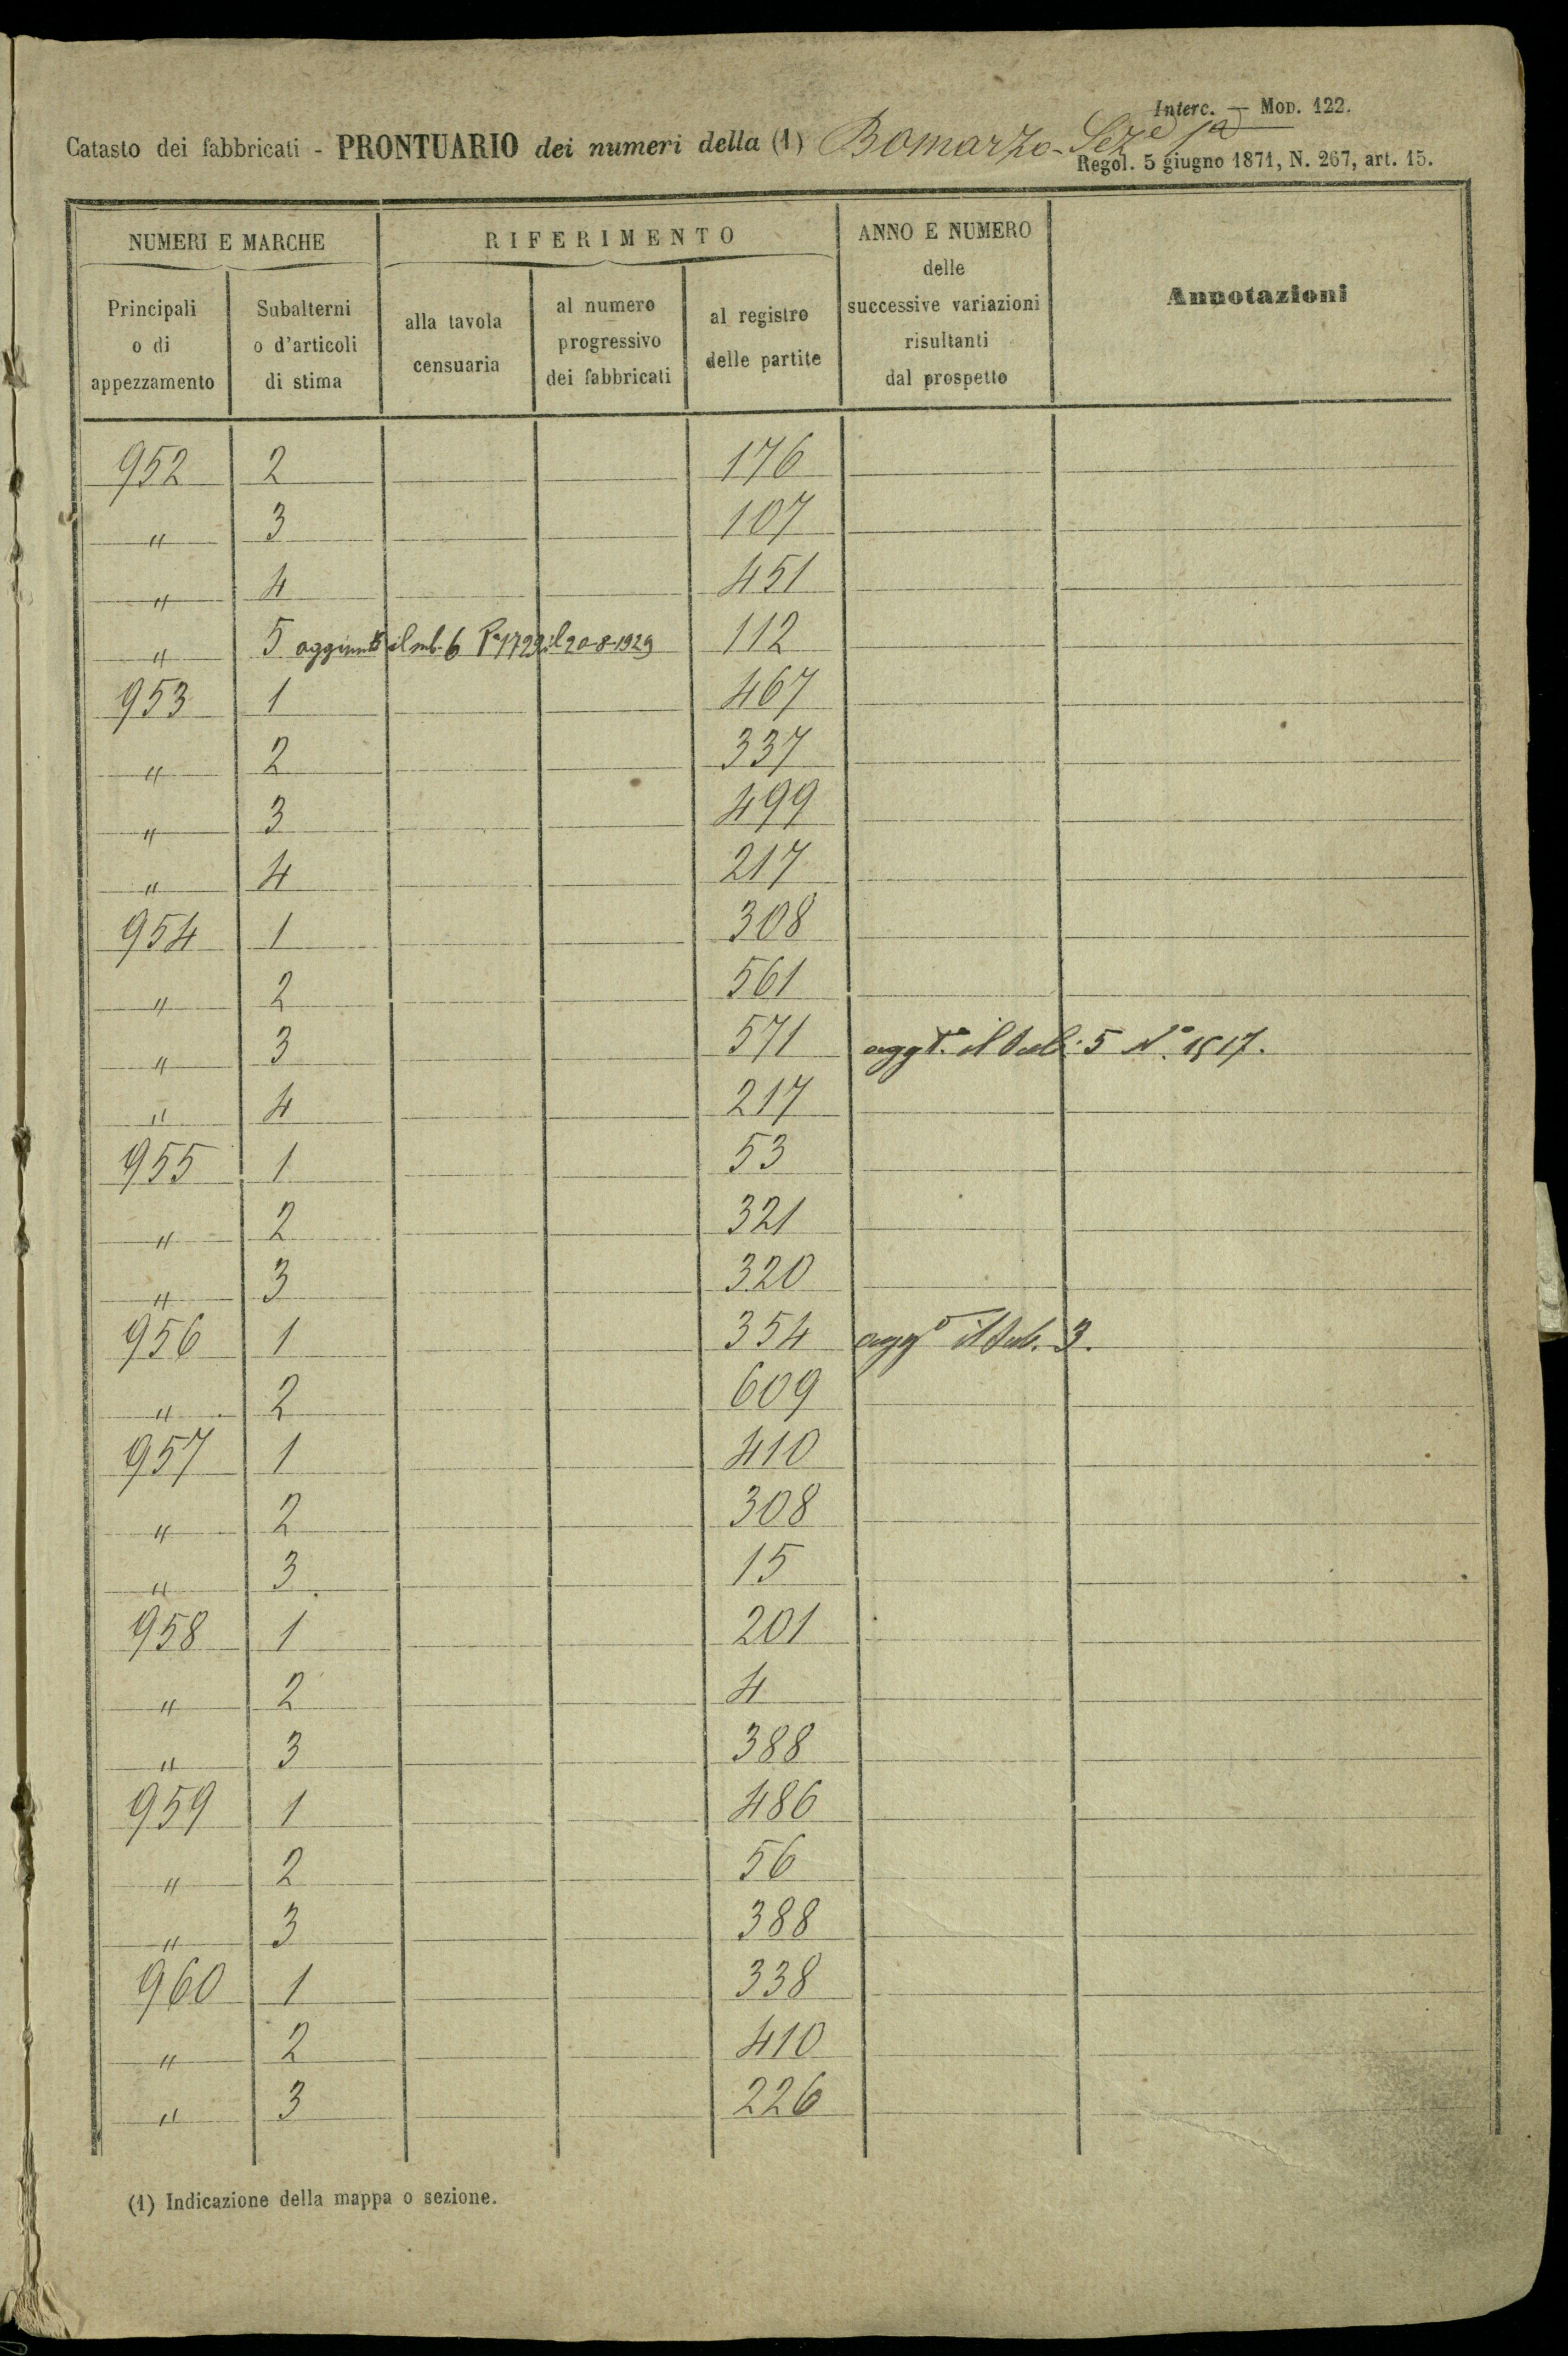 Interc. — Mod. 122.
Catasto dei fabbricati - PRONTUARIO dei numeri della (1) Bomarzo - Sez.e 1a
Regol. 5 giugno 1871, N. 267, art. 15.
NUMERI E MARCHE
RIFERIMENTO
ANNO E NUMERO
delle
successive variazioni
risultanti
dal prospetto
Annotazioni
Principali
o di
appezzamento
Subalterni
o d'articoli
di stima
alla tavola
censuaria
al numero
progressivo
dei fabbricati
al registro
delle partite
952 2 176
" 3 107
" 4 451
" 5 aggiunto il sub. 6 Pa 1729 il 20-8-1929 112
953 1 467
" 2 337
" 3 499
" 4 217
954 1 308
" 2 561
" 3 571 aggto. il sub. 5 No.
" 4 217
955 1 53
" 2 321
" 3 320
956 1 354 aggo il sub. 3.
" 2 609
957 1 410
" 2 308
" 3 15
958 1 201
" 2 4
" 3 388
959 1 486
" 2 56
" 3 388
960 1 338
" 2 410
" 3 226
(1) Indicazione della mappa o sezione.